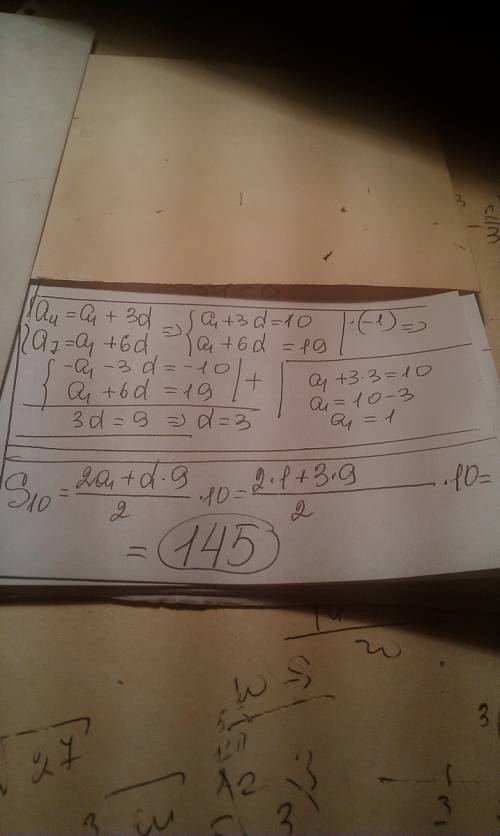 {a₄ = a₁ + 3d => {a₁ + 3d = 10 | ·(-1) =>
{a₇ = a₁ + 6d {a₁ + 6d = 19
{-a₁ - 3d = -10 | +
{a₁ + 6d = 19
3d = 9 => d = 3
a₁ + 3·3 = 10
a₁ = 10 - 3
a₁ = 1
S₁₀ = (2a₁ + d·9)/2 ·10 = (2·1 + 3·9)/2 ·10 =
= 145
√27
3